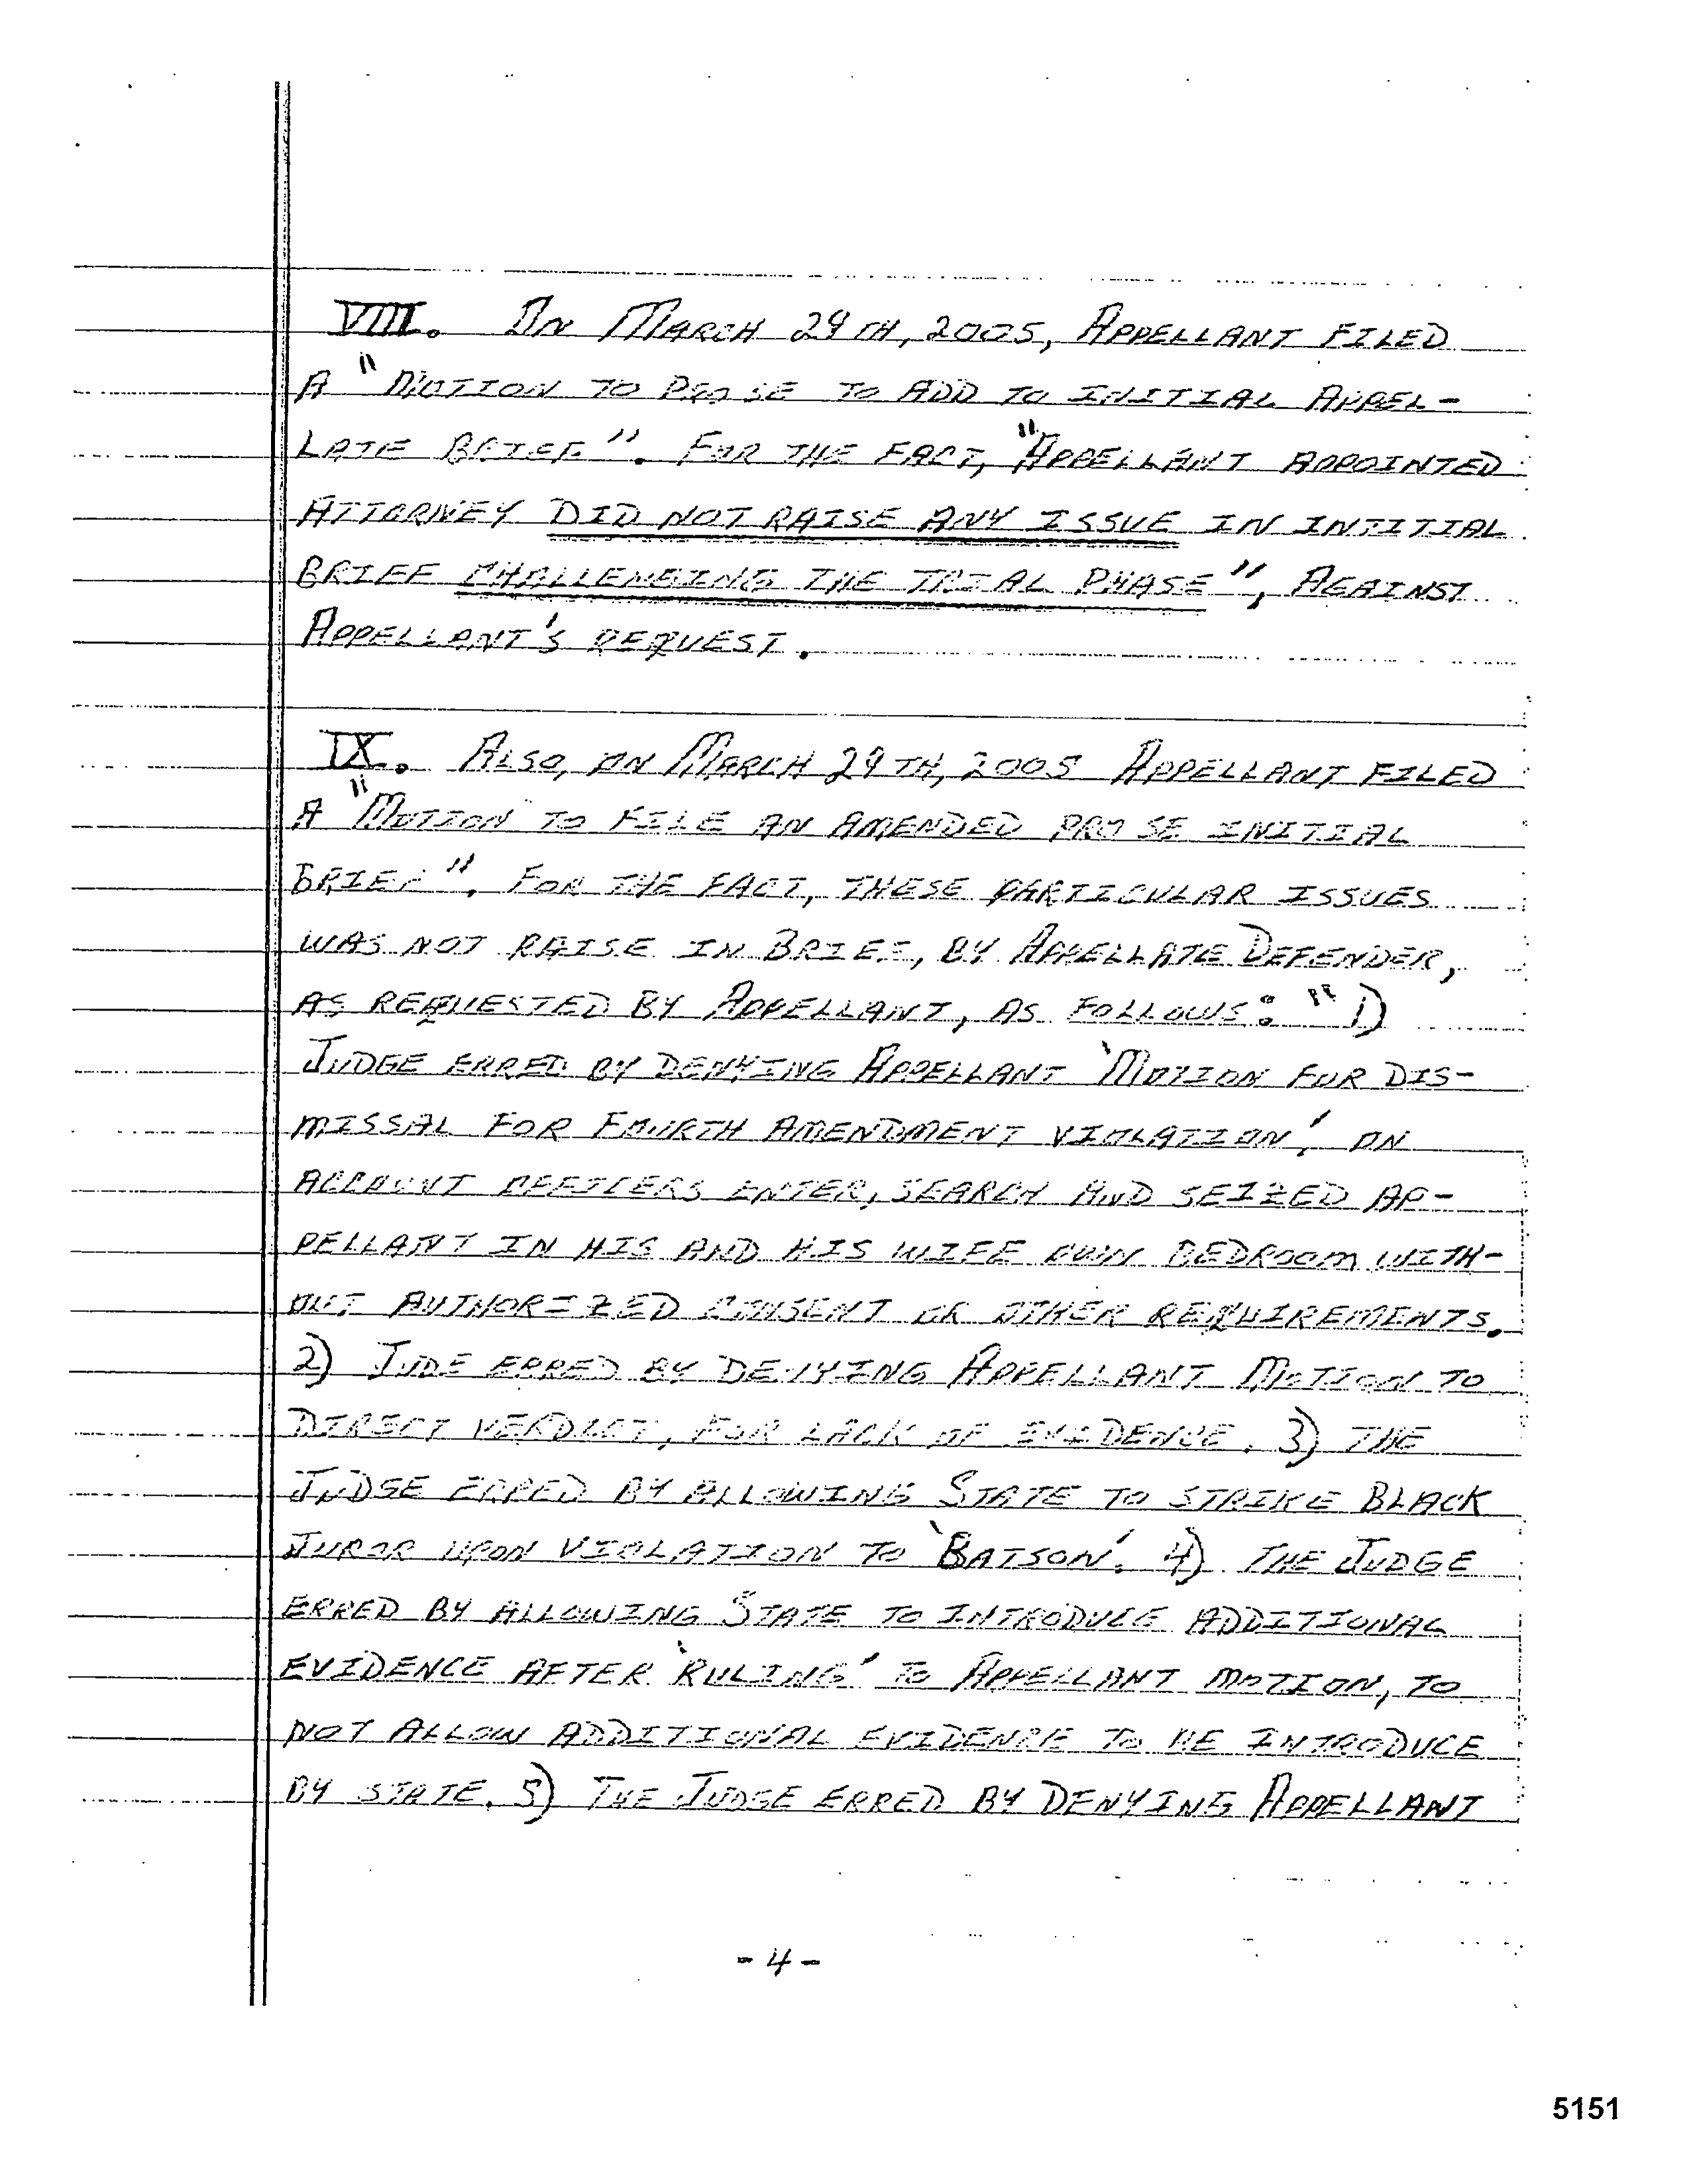 VIII. ON MARCH 29TH, 2005, APPELLANT FILED
A "MOTION TO PRO SE TO ADD TO INITIAL APPEL-
LATE BRIEF". FOR THE FACT, "APPELLANT APPOINTED
ATTORNEY DID NOT RAISE ANY ISSUE IN INTITIAL
BRIEF CHALLENGING THE TRIAL PHASE", AGAINST
APPELLANT'S REQUEST.
IX. ALSO, ON MARCH 29TH, 2005 APPELLANT FILED
A "MOTION TO FILE AN AMENDED PRO SE INITIAL
BRIEF". FOR THE FACT, THESE PARTICULAR ISSUES
WAS NOT RAISE IN BRIEF, BY APPELLATE DEFENDER,
AS REQUESTED BY APPELLANT, AS FOLLOWS: "1)
JUDGE ERRED BY DENYING APPELLANT 'MOTION FOR DIS-
MISSAL FOR FOURTH AMENDMENT VIOLATION', ON
ACCOUNT OFFICERS ENTER, SEARCH AND SEIZED AP-
PELLANT IN HIS AND HIS WIFE OWN BEDROOM WITH-
OUT AUTHORIZED CONSENT OR OTHER REQUIREMENTS.
2) JUDE ERRED BY DENYING APPELLANT MOTION TO
DIRECT VERDICT, FOR LACK OF EVIDENCE. 3) THE
JUDGE ERRED BY ALLOWING STATE TO STRIKE BLACK
JUROR UPON VIOLATION TO 'BATSON'. 4) THE JUDGE
ERRED BY ALLOWING STATE TO INTRODUCE ADDITIONAL
EVIDENCE AFTER 'RULING' TO APPELLANT MOTION, TO
NOT ALLOW ADDITIONAL EVIDENCE TO BE INTRODUCE
BY STATE. 5) THE JUDGE ERRED BY DENYING APPELLANT
-4-
5151